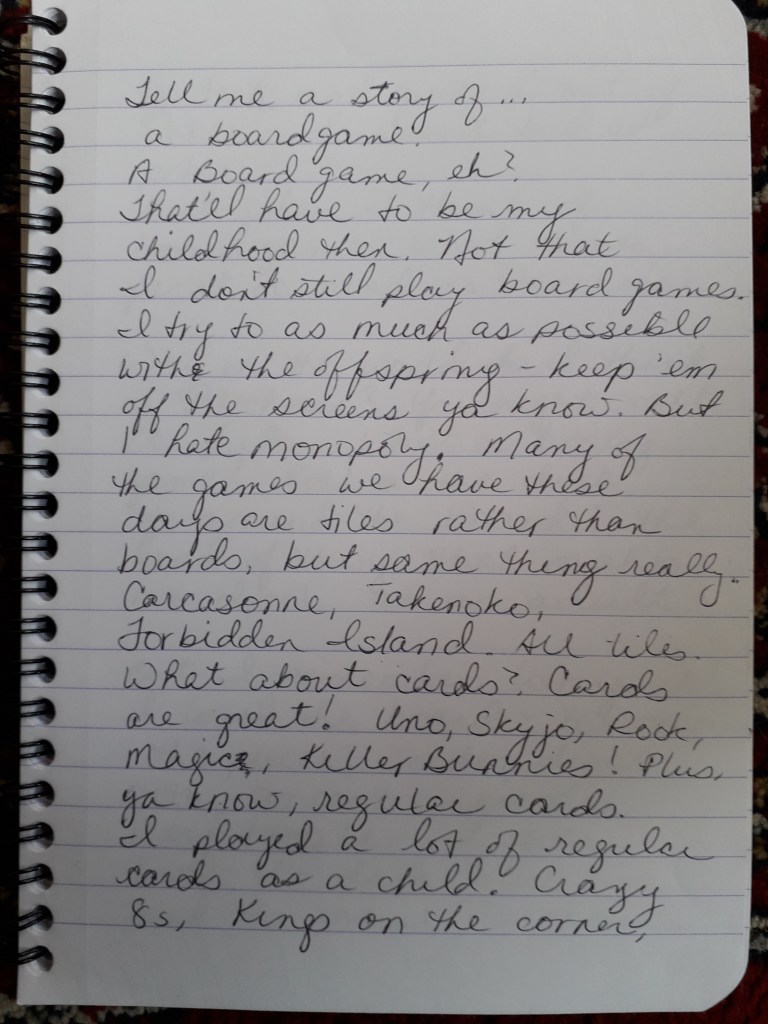 Tell me a story of...
a boardgame.
A Board game, eh?
That'll have to be my
childhood then. Not that
I don't still play board games.
I try to as much as possible
with the offspring - keep 'em
off the screens ya know. But
I hate monopoly. Many of
the games we have these
days are tiles rather than
boards, but same thing really.
Carcasonne, Takenoko,
Forbidden Island. All tiles.
What about cards? Cards
are great! Uno, Skyjo, Rook,
Magic, Killer Bunnies! Plus,
ya know, regular cards.
I played a lot of regular
cards as a child. Crazy
8s, Kings on the corner,